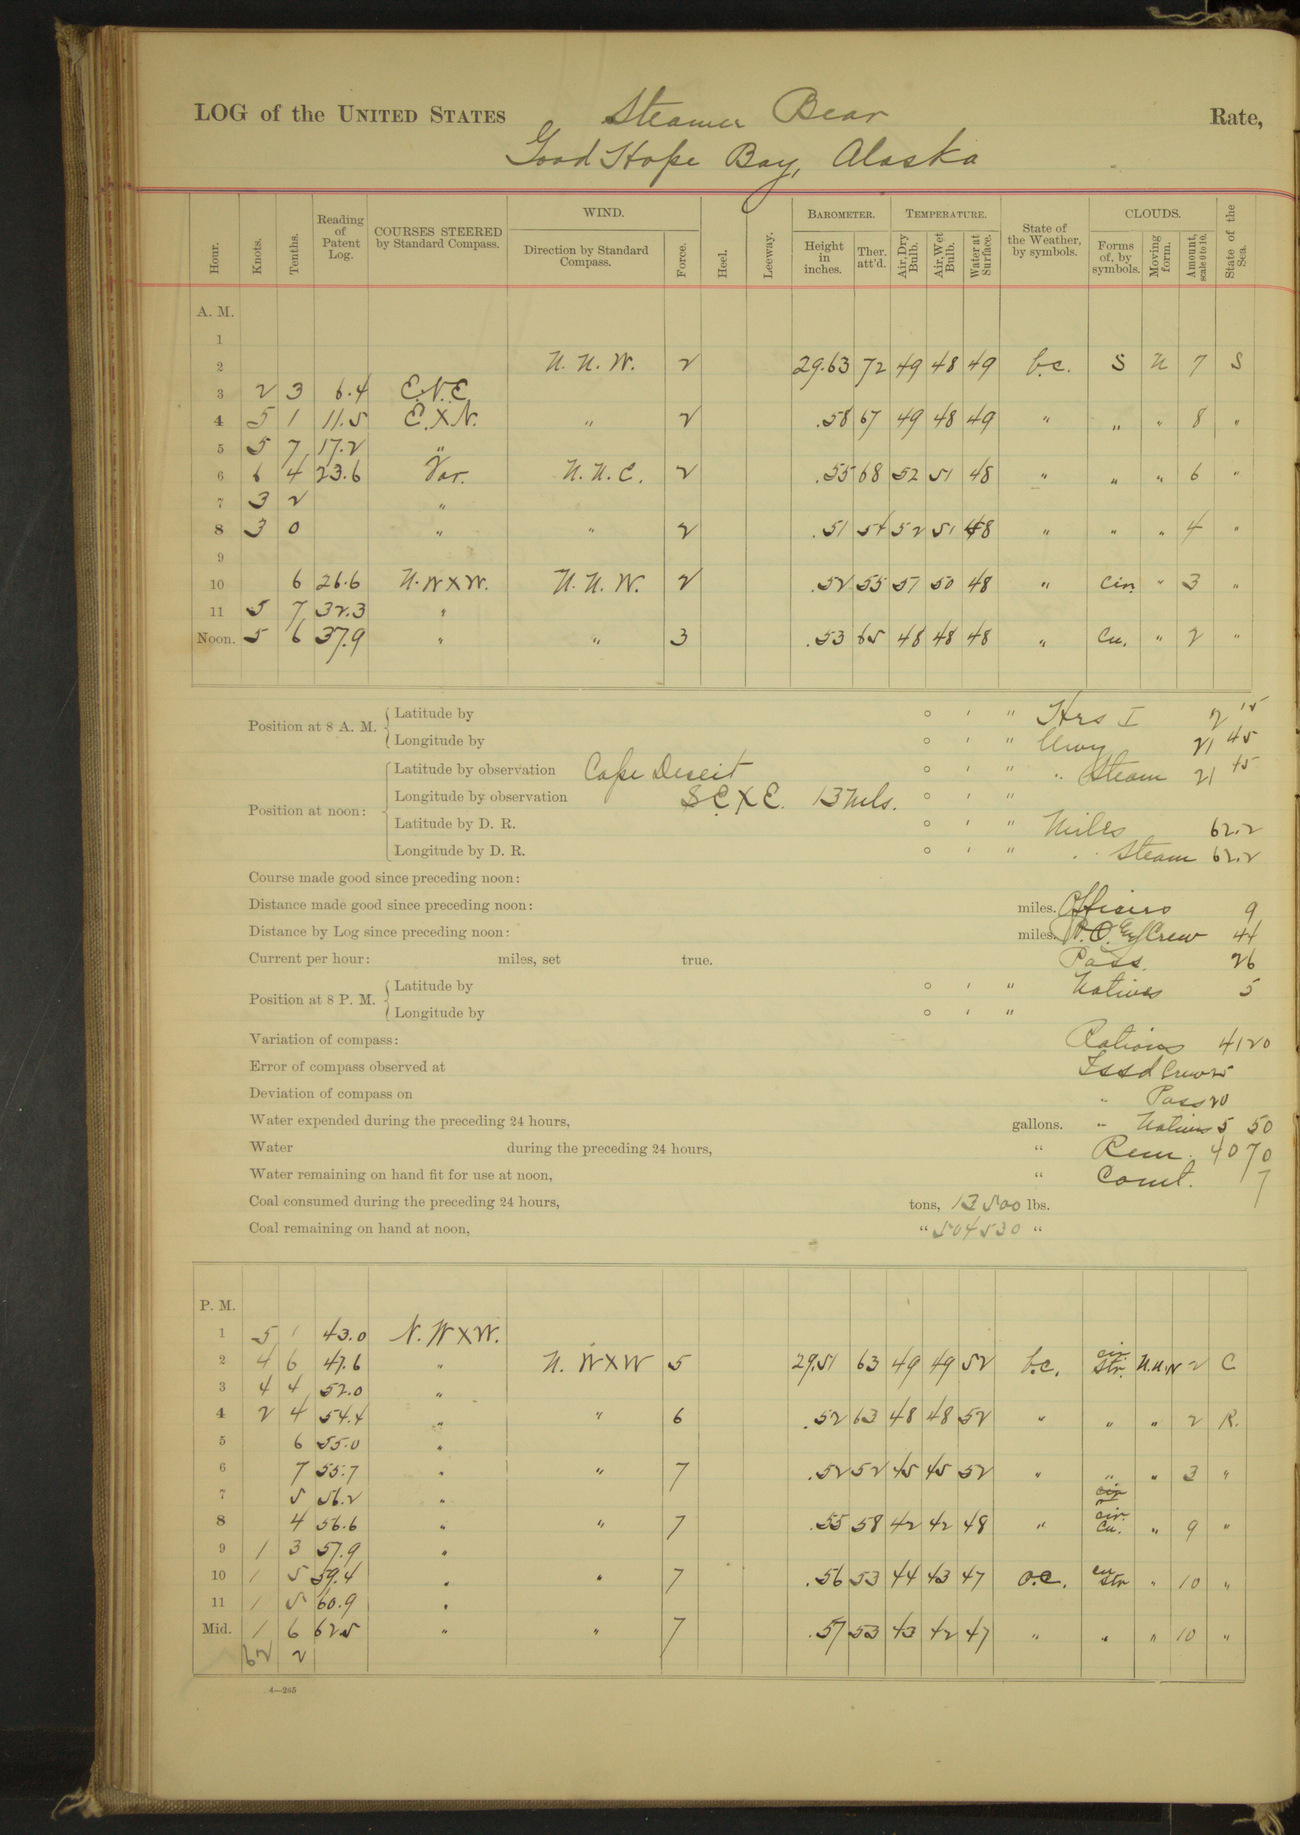 LOG of the UNITED STATES Steamer Bear Rate,
Good Hope Bay, Alaska
Hour. Knots. Tenths. Reading of Patent Log. COURSES STEERED by Standard Compass. WIND. Direction by Standard Compass. Force. Heel. Leeway. BAROMETER. Height in inches. Ther. att'd. TEMPERATURE. Air, Dry Bulb. Air, Wet Bulb. Water at Surface. State of the Weather, by symbols. CLOUDS. Forms of, by symbols. Moving form. Amount, scale 0 to 10. State of the Sea.
A. M.
1
2 N. N. W. 2 29.63 72 49 48 49 b.c. S N 7 S
3 2 3 6.4 E.N.E.
4 5 1 11.5 E.XN. " 2 .58 67 49 48 49 " " " 8 "
5 5 7 17.2 "
6 6 4 23.6 Var. N. N. E. 2 .55 68 52 51 48 " " " 6 "
7 3 2 "
8 3 0 " " 2 .51 54 52 51 48 " " " 4 "
9
10 6 26.6 N. W X W. N. N. W. 2 .52 55 51 50 48 " Cir. " 3 "
11 5 7 32.3 "
Noon. 5 6 37.9 " " 3 .53 65 48 48 48 " Cu. " 2 "
Position at 8 A. M. Latitude by ° ' " Hrs I 2 15
Longitude by ° ' " Uwy 21 45
Position at noon: Latitude by observation Cape Deceit ° ' " " Steam 21 45
Longitude by observation S.E X E. 13 Mls. ° ' "
Latitude by D. R. ° ' " Miles 62.2
Longitude by D. R. ° ' " " Steam 62.2
Course made good since preceding noon:
Distance made good since preceding noon: miles. Officers 9
Distance by Log since preceding noon: miles. P.O. & Crew 44
Current per hour: miles, set true. Pass. 26
Position at 8 P. M. Latitude by ° ' " Natives 5
Longitude by ° ' "
Variation of compass: Rations 4120
Error of compass observed at Issd Crew 25
Deviation of compass on " Pass 20
Water expended during the preceding 24 hours, gallons. " Natives 5 50
Water during the preceding 24 hours, " Rem. 4070
Water remaining on hand fit for use at noon, " Comt. 7
Coal consumed during the preceding 24 hours, tons, 13500 lbs.
Coal remaining on hand at noon, " 504530 "
P. M.
1 5 1 43.0 N. W X W.
2 4 6 47.6 " N. W X W 5 29.51 63 49 49 52 b.c. cir. Str. N.N.W 2 C
3 4 4 52.0 "
4 2 4 54.4 " " 6 .52 63 48 48 52 " " " 2 R.
5 6 55.0 "
6 7 55.7 " " 7 .52 52 45 45 52 " " " 3 "
7 5 56.2 "
8 4 56.6 " " 7 .55 58 42 42 48 " cir. Cu. " 9 "
9 1 3 57.9 "
10 1 5 59.4 " " 7 .56 53 44 43 47 o.c. cu Str " 10 "
11 1 5 60.9 "
Mid. 1 6 62.5 " " 7 .57 53 43 42 47 " " " 10 "
62 2
4—265